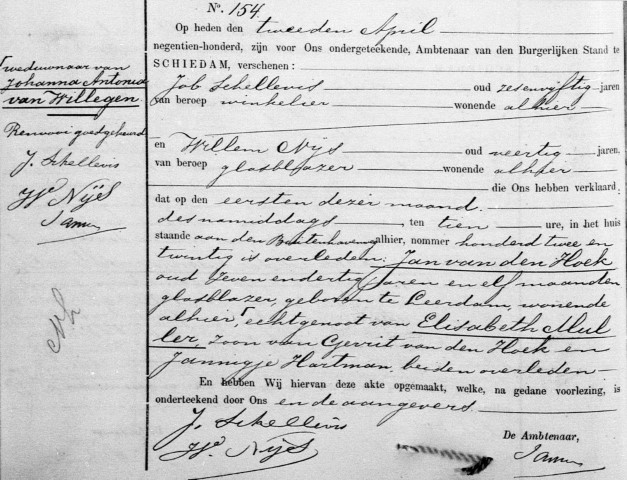 No. 154.
Op heden den tweeden April
negentien-honderd, zijn voor Ons ondergeteekende, Ambtenaar van den Burgerlijken Stand te
SCHIEDAM, verschenen:
Job Schellevis oud zesenvijftig jaren
van beroep winkelier wonende alhier
en Willem Nijs oud veertig jaren,
van beroep glasblazer wonende alhier
die Ons hebben verklaard,
dat op den eersten dezer maand.
des namiddags ten tien ure, in het huis
staande aan den Buitenhavenweg alhier, nommer honderd twee en
twintig is overleden: Jan van den Hoek
oud zeven en dertig jaren en elf maanden
glasblazer, geboren te Leerdam, wonende
alhier, echtgenoot van Elisabeth Mul-
ler, zoon van Gerrit van den Hoek en
Jannigje Hartman, beiden overleden
En hebben Wij hiervan deze akte opgemaakt, welke, na gedane voorlezing, is
onderteekend door Ons en de aangevers.
J. Schellevis
W. Nijs
De Ambtenaar,
weduwnaar van
Johanna Antonia
van Willegen.
Renvooi goedgekeurd
J. Schellevis
W. Nijs